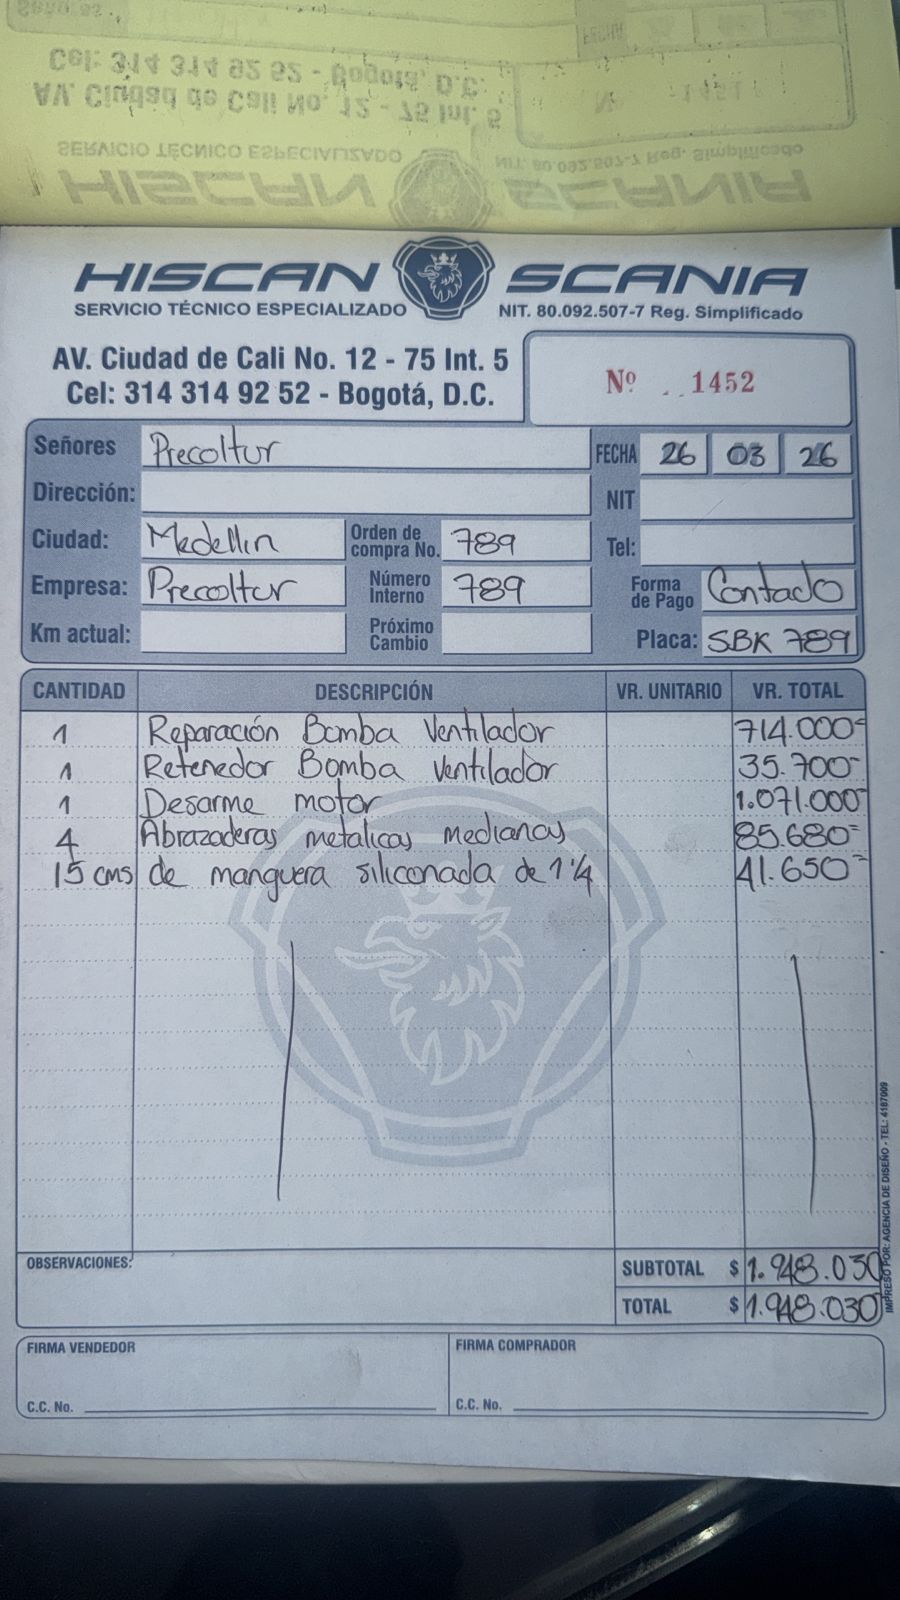 Señores
FECHA
Cel: 314 314 92 52 - Bogotá, D.C.
AV. Ciudad de Cali No. 12 - 75 Int. 5
Nº 1451
SERVICIO TÉCNICO ESPECIALIZADO
NIT. 80.092.507-7 Reg. Simplificado
HISCAN SCANIA
HISCAN SCANIA
SERVICIO TÉCNICO ESPECIALIZADO
NIT. 80.092.507-7 Reg. Simplificado
AV. Ciudad de Cali No. 12 - 75 Int. 5
Cel: 314 314 92 52 - Bogotá, D.C.
Nº 1452
Señores Precoltur FECHA 26 03 26
Dirección: NIT
Ciudad: Medellin Orden de compra No. 789 Tel:
Empresa: Precoltur Número Interno 789 Forma de Pago Contado
Km actual: Próximo Cambio Placa: SBK 789
CANTIDAD DESCRIPCIÓN VR. UNITARIO VR. TOTAL
1 Reparación Bomba Ventilador 714.000=
1 Retenedor Bomba Ventilador 35.700=
1 Desarme motor 1.071.000=
4 Abrazaderas metalicas medianas 85.680=
15 cms de manguera siliconada de 1 1/4 41.650=
OBSERVACIONES:
SUBTOTAL $ 1.948.030
TOTAL $ 1.948.030
FIRMA VENDEDOR FIRMA COMPRADOR
C.C. No. C.C. No.
IMPRESO POR: AGENCIA DE DISEÑO - TEL: 4187009